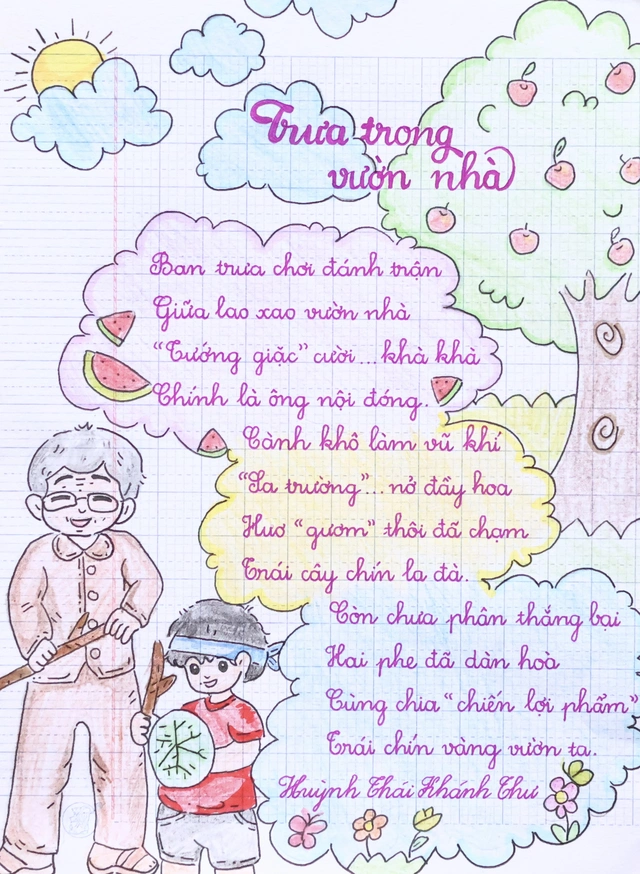 Trưa trong
vườn nhà
Ban trưa chơi đánh trận
Giữa lao xao vườn nhà
"Tướng giặc" cười... khà khà
Chính là ông nội đóng.
Cành khô làm vũ khí
"Sa trường"... nở đầy hoa
Huơ "gươm" thôi đã chạm
Trái cây chín la đà.
Còn chưa phân thắng bại
Hai phe đã dàn hoà
Cùng chia "chiến lợi phẩm"
Trái chín vàng vườn ta.
Huỳnh Thái Khánh Thư